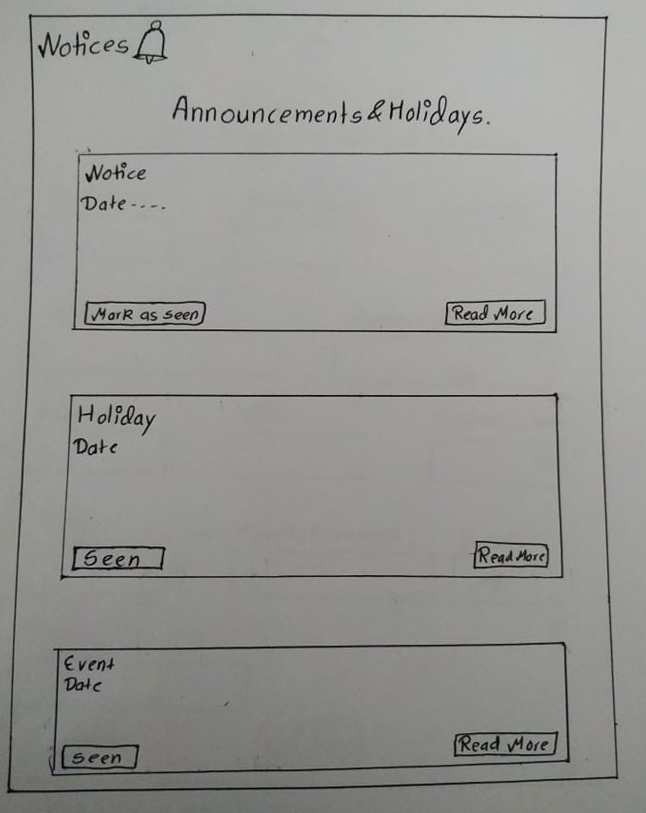 Notices
Announcements & Holidays.
Notice
Date ----.
Mark as seen
Read More
Holiday
Date
Seen
Read More
Event
Date
seen
Read More